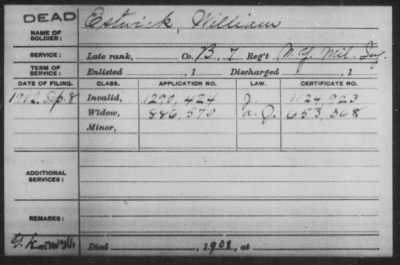 DEAD
NAME OF SOLDIER: Estwick, William
SERVICE: Late rank, Co. B, 7 Reg't N.Y. Mil. Inf.
TERM OF SERVICE: Enlisted , 1 Discharged , 1
DATE OF FILING. CLASS. APPLICATION NO. LAW. CERTIFICATE NO.
Sep. 8 Invalid, 1290,424 1124,923
Widow, 886,570 653,568
Minor,
ADDITIONAL SERVICES:
REMARKS:
Died , 1908, at